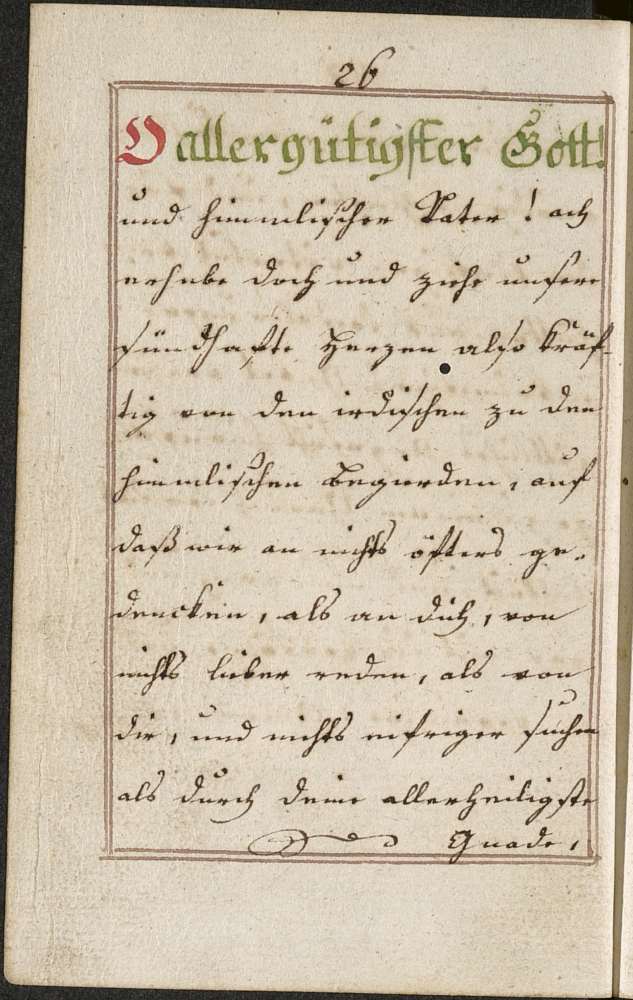 26
O allergütigster Gott!
und himmlischer Vater! ach
erhebe doch und ziehe unsere
sündhafte Herzen also kräf-
tig von den irdischen zu den
himmlischen Begierden, auf
daß wir an nichts öfters ge-
dencken, als an dich, von
nichts lieber reden, als von
dir, und nichts eifriger suchen
als durch deine allerheiligste
Gnade,